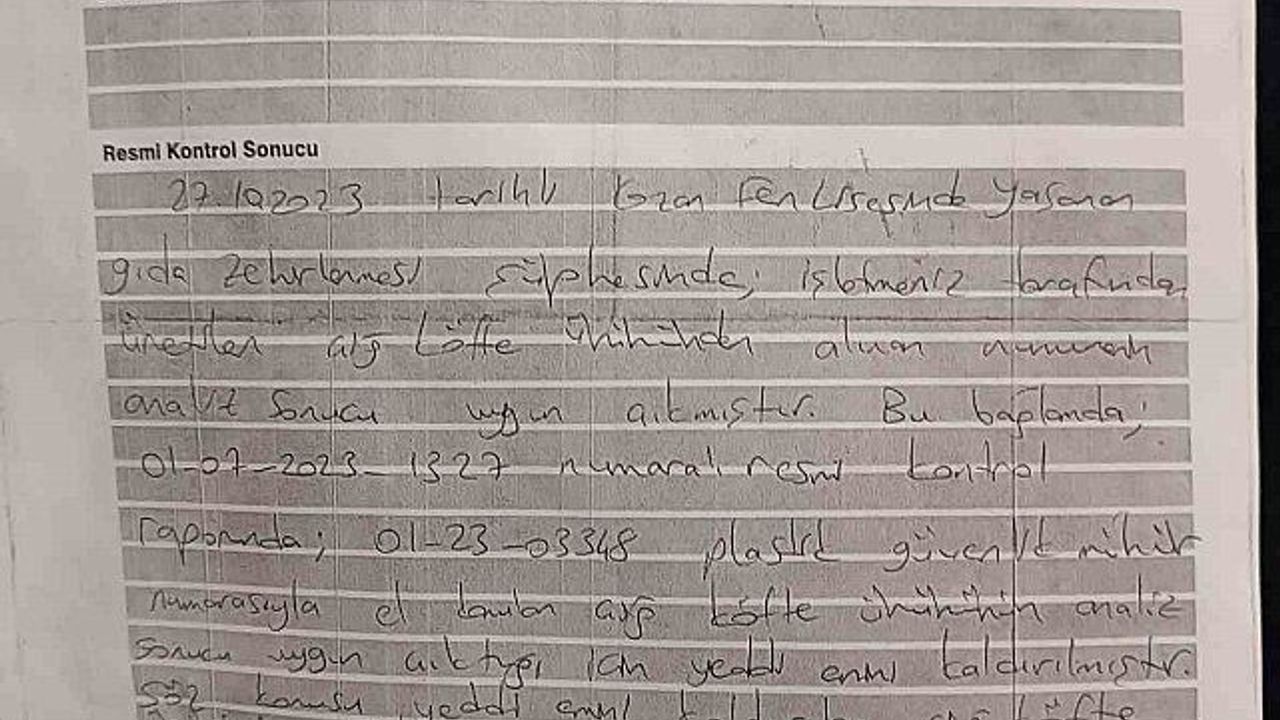 Resmi Kontrol Sonucu
27.10.2023 tarihli Kozan Fen Lisesinde yaşanan
gıda zehirlenmesi şüphesinde; işletmeniz tarafından
üretilen çiğ köfte ürününden alınan numunenin
analiz sonucu uygun çıkmıştır. Bu bağlamda;
01-07-2023-1327 numaralı resmi kontrol
raporunda; 01-23-03348 plastik güvenlik mühür
numarasıyla el konulan çiğ köfte ürününün analiz
sonucu uygun çıktığı için yeddi emini kaldırılmıştır.
Söz konusu yeddi emini